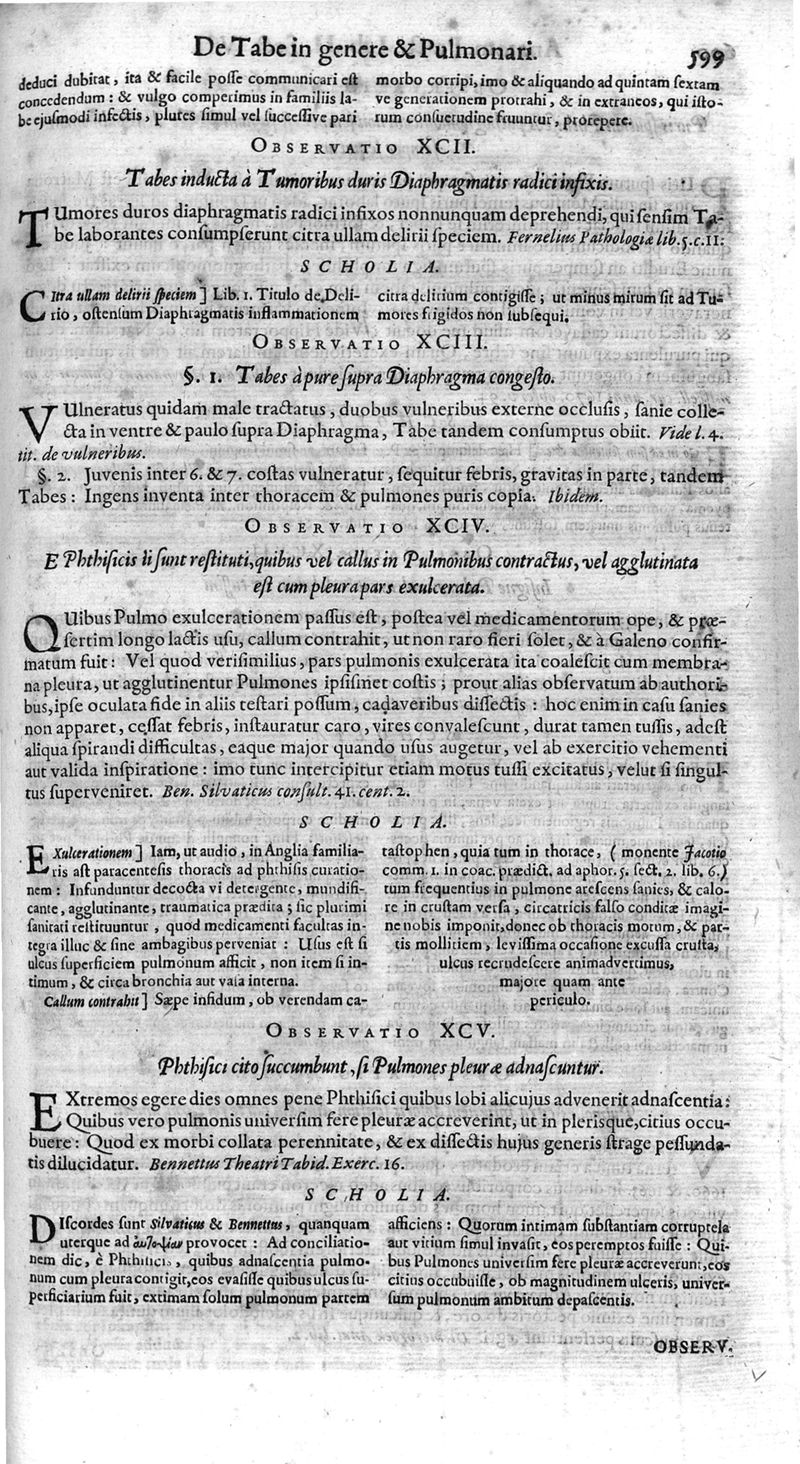 De Tabe in genere & Pulmonari. 599
deduci dubitat, ita & facile poſſe communicari eſt
concedendum: & vulgo comperimus in familiis la-
be ejuſmodi infectis, plures ſimul vel ſucceſſive pari
morbo corripi, imo & aliquando ad quintam ſextam
ve generationem protrahi, & in extraneos, qui iſto-
rum conſuetudine fruuntur, prorepere.
OBSERVATIO XCII.
Tabes inducta à Tumoribus duris Diaphragmatis radici infixis.
TUmores duros diaphragmatis radici infixos nonnunquam deprehendi, qui ſenſim Ta-
be laborantes conſumpſerunt citra ullam delirii ſpeciem. Fernelius Pathologiæ lib. 5. c. 11.
SCHOLIA.
CItra ullam delirii ſpeciem] Lib. 1. Titulo de Deli-
rio, oſtenſum Diaphragmatis inflammationem
citra delirium contigiſſe; ut minus mirum ſit ad Tu-
mores frigidos non ſubſequi.
OBSERVATIO XCIII.
§. 1. Tabes à pure ſupra Diaphragma congeſto.
VUlneratus quidam male tractatus, duobus vulneribus externe occluſis, ſanie colle-
cta in ventre & paulo ſupra Diaphragma, Tabe tandem conſumptus obiit. Vide l. 4.
tit. de vulneribus.
§. 2. Juvenis inter 6. & 7. coſtas vulneratur, ſequitur febris, gravitas in parte, tandem
Tabes: Ingens inventa inter thoracem & pulmones puris copia. Ibidem.
OBSERVATIO XCIV.
E Phthiſicis ii ſunt reſtituti, quibus vel callus in Pulmonibus contractus, vel agglutinata
eſt cum pleura pars exulcerata.
QUibus Pulmo exulcerationem paſſus eſt, poſtea vel medicamentorum ope, & præ-
ſertim longo lactis uſu, callum contrahit, ut non raro fieri ſolet, & à Galeno confir-
matum fuit: Vel quod veriſimilius, pars pulmonis exulcerata ita coaleſcit cum membra-
na pleura, ut agglutinentur Pulmones ipſiſmet coſtis; prout alias obſervatum ab authori-
bus, ipſe oculata fide in aliis teſtari poſſum, cadaveribus diſſectis: hoc enim in caſu ſanies
non apparet, ceſſat febris, inſtauratur caro, vires convaleſcunt, durat tamen tuſſis, adeſt
aliqua ſpirandi difficultas, eaque major quando uſus augetur, vel ab exercitio vehementi
aut valida inſpiratione: imo tunc intercipitur etiam motus tuſſi excitatus, velut ſi ſingul-
tus ſuperveniret. Ben. Silvaticus conſult. 41. cent. 2.
SCHOLIA.
EXulcerationem] Iam, ut audio, in Anglia familia-
ris aſt paracenteſis thoracis ad phthiſis curatio-
nem: Infunduntur decocta vi detergente, mundifi-
cante, agglutinante, traumatica prædita; ſic plurimi
ſanitati reſtituuntur, quod medicamenti facultas in-
tegra illuc & ſine ambagibus perveniat: Uſus eſt ſi
ulcus ſuperficiem pulmonum afficit, non item ſi in-
timum, & circa bronchia aut vaſa interna.
Callum contrahit] Sæpe infidum, ob verendam ca-
taſtophen, quia tum in thorace, (monente Jacotio
comm. 1. in coac. prædict. ad aphor. 5. ſect. 2. lib. 6.)
tum frequentius in pulmone areſcens ſanies, & calo-
re in cruſtam verſa, circatricis falſo conditæ imagi-
ne nobis imponit, donec ob thoracis motum, & par-
tis mollitiem, leviſſima occaſione excuſſa cruſta,
ulcus recrudeſcere animadvertimus,
majore quam ante
periculo.
OBSERVATIO XCV.
Phthiſici cito ſuccumbunt, ſi Pulmones pleuræ adnaſcuntur.
EXtremos egere dies omnes pene Phthiſici quibus lobi alicujus advenerit adnaſcentia:
Quibus vero pulmonis univerſim fere pleuræ accreverint, ut in plerisque, citius occu-
buere: Quod ex morbi collata perennitate, & ex diſſectis hujus generis ſtrage peſſunda-
tis dilucidatur. Bennettus Theatri Tabid. Exerc. 16.
SCHOLIA.
DIſcordes ſunt Silvaticus & Bennettus, quanquam
uterque ad provocet: Ad conciliatio-
nem dic, è Phthiſicis, quibus adnaſcentia pulmo-
num cum pleura contigit, eos evaſiſſe quibus ulcus ſu-
perficiarium fuit, extimam ſolum pulmonum partem
afficiens: Quorum intimam ſubſtantiam corruptela
aut vitium ſimul invaſit, eos peremptos fuiſſe: Qui-
bus Pulmones univerſim fere pleuræ accreverunt, eos
citius occubuiſſe, ob magnitudinem ulceris, univer-
ſum pulmonum ambitum depaſcentis.
OBSERV.